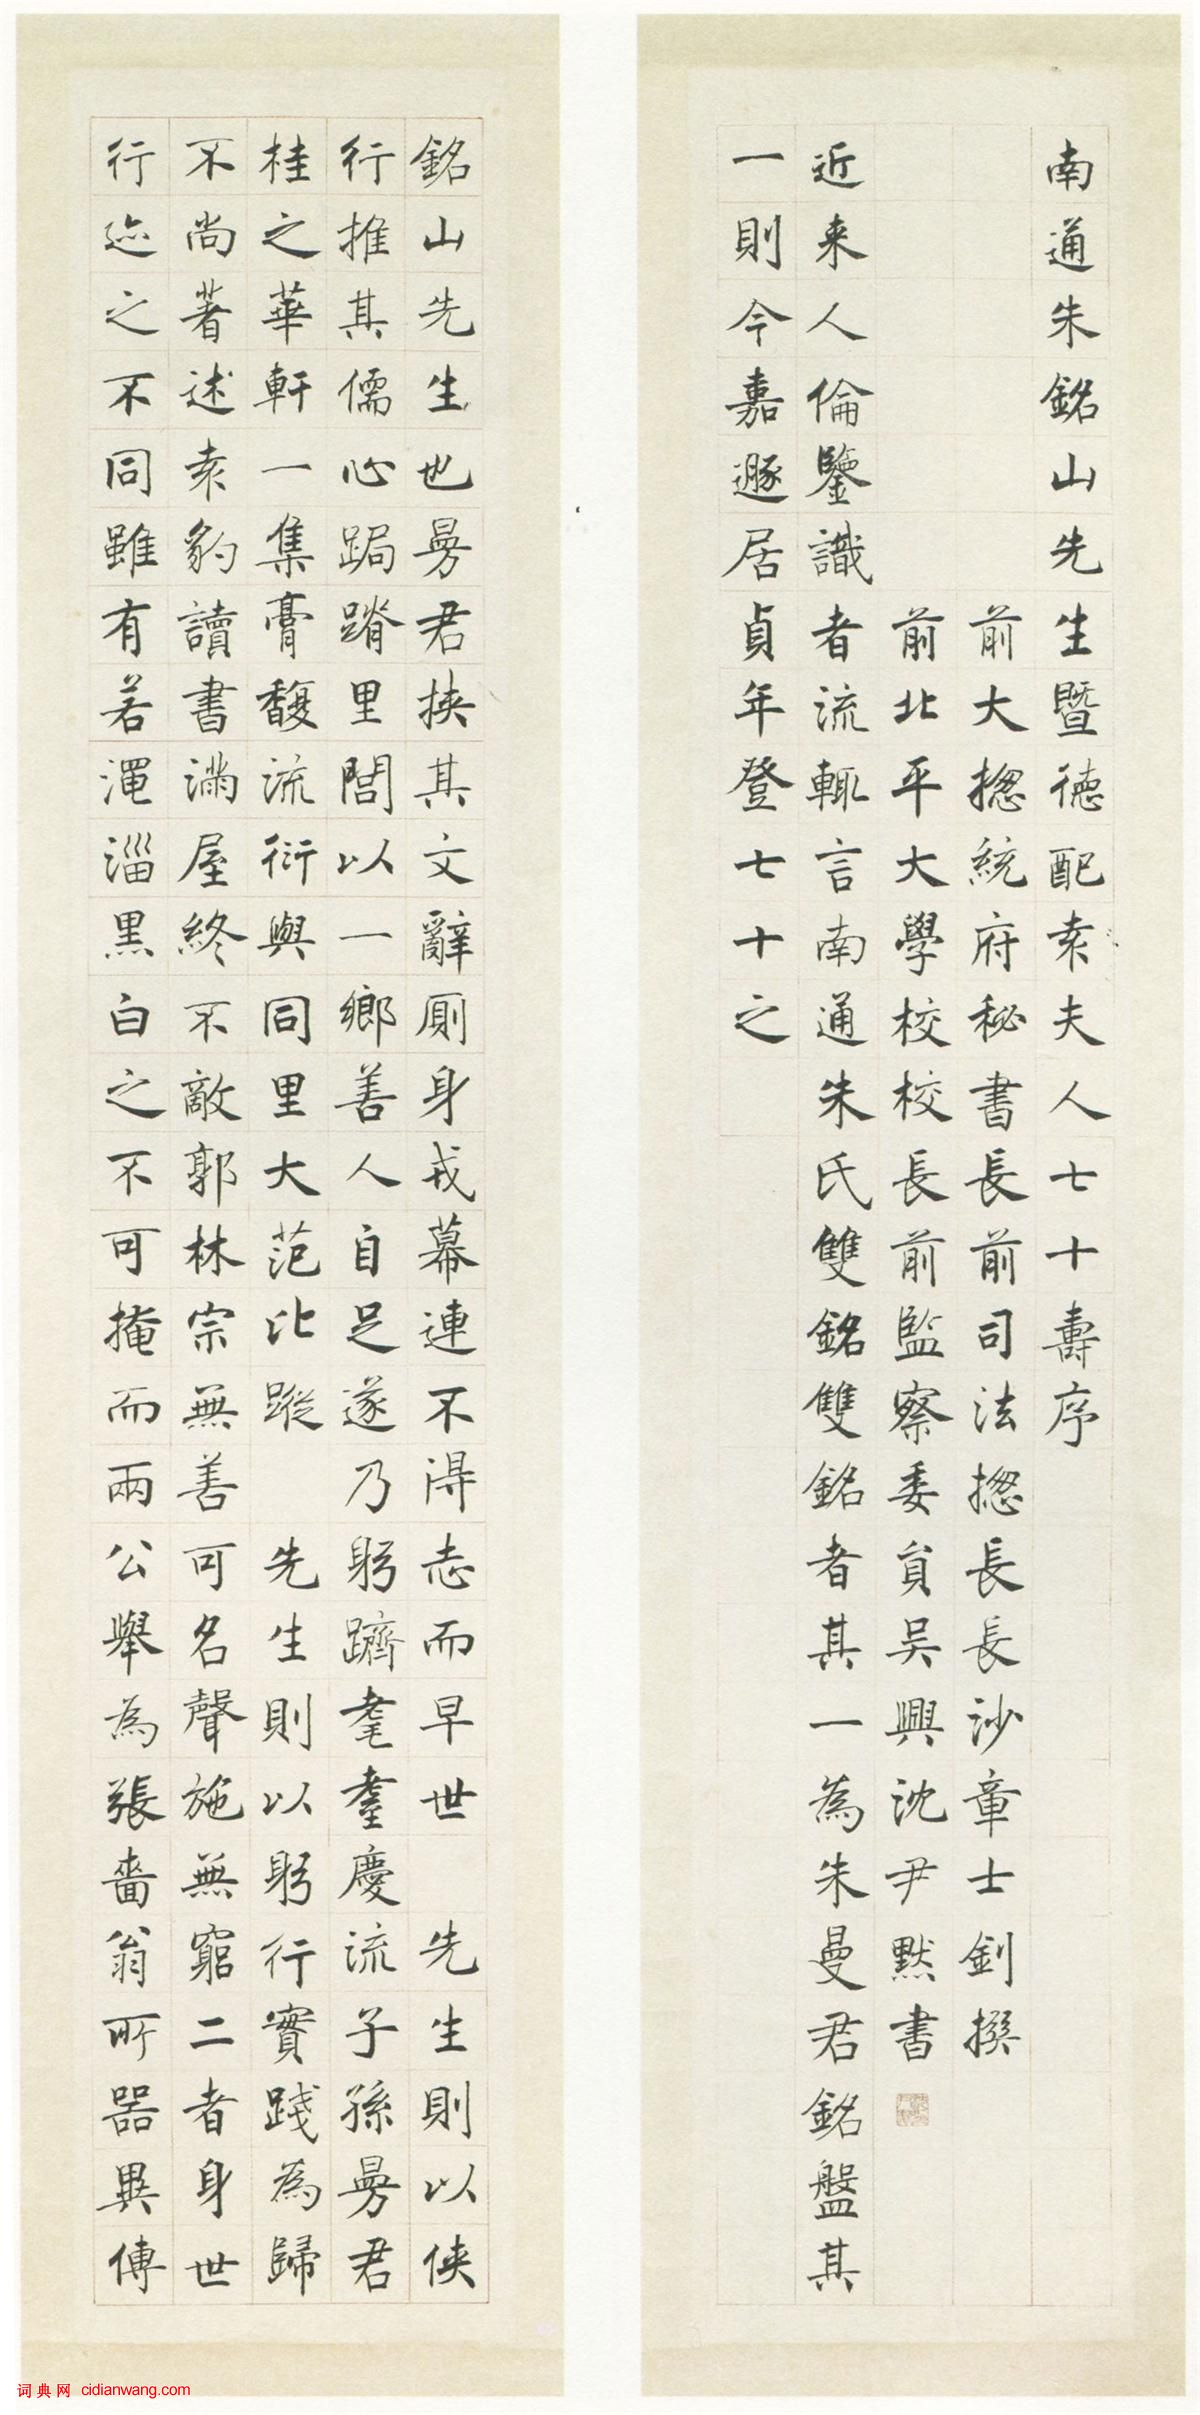 南通朱銘山先生暨德配袁夫人七十壽序
前大揔統府秘書長前司法揔長長沙章士釗撰
前北平大學校校長前監察委員吳興沈尹默書
近来人倫鑒識者流輒言南通朱氏雙銘雙銘者其一為朱曼君銘盤其
一則今嘉遯居貞年登七十之
銘山先生也曼君挾其文辭厠身戎幕連不得志而早世 先生則以俠
行推其儒心跼蹐里閭以一鄉善人自足遂乃躬躋耄耋慶流子孫曼君
桂之華軒一集膏馥流衍與同里大范比蹤 先生則以躬行實踐為歸
不尚著述袁豹讀書滿屋終不敵郭林宗無善可名聲施無窮二者身世
行迹之不同雖有若澠淄黑白之不可掩而兩公舉為張嗇翁所器異傳
词典网 cidianwang.com